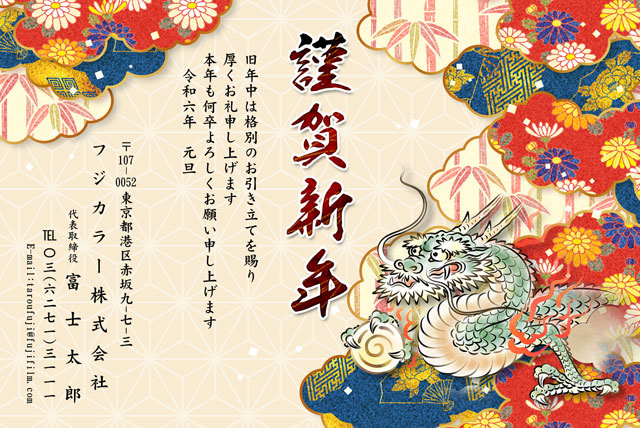 謹賀新年
旧年中は格別のお引き立てを賜り
厚くお礼申し上げます
本年も何卒よろしくお願い申し上げます
令和六年　元旦
〒107-0052 東京都港区赤坂九-七-三
フジカラー株式会社
代表取締役　富士太郎
TEL〇三(六二七一)三一一一
E-mail:taroufuji@fujifilm.com